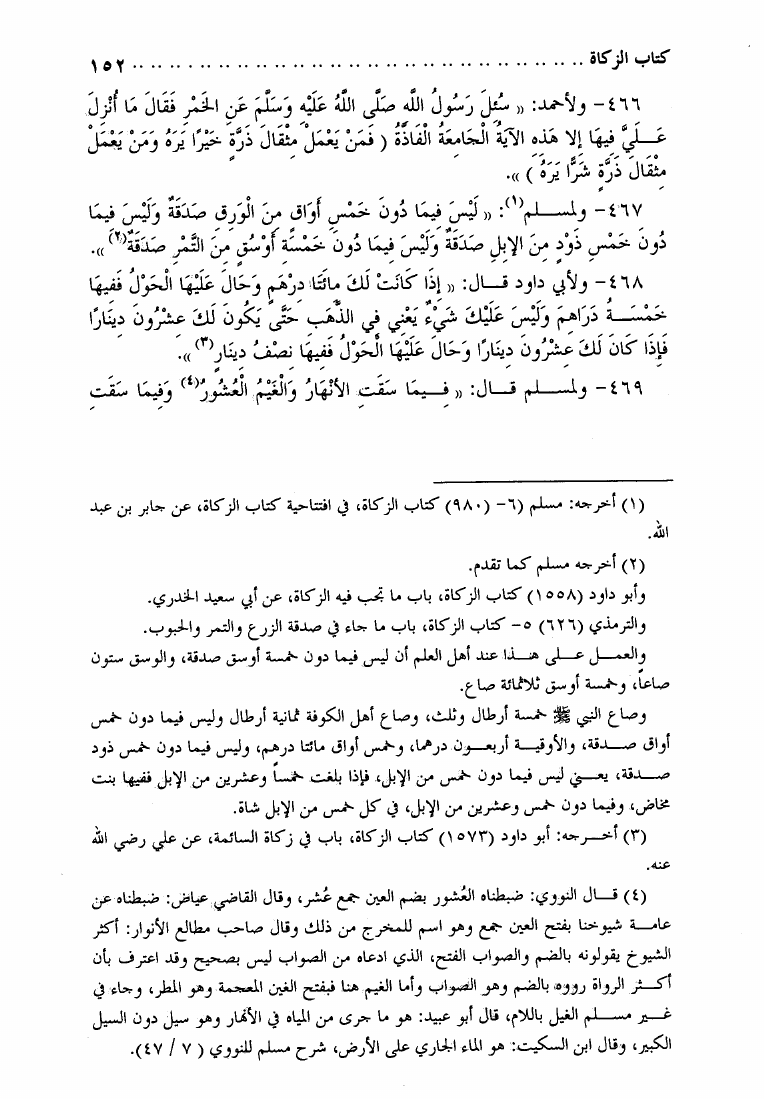 كتاب الزكاة .................................................. ١٥٢
٤٦٦- ولأحمد: « سُئِلَ رَسُولُ اللَّهِ صَلَّى اللَّهُ عَلَيْهِ وَسَلَّمَ عَنِ الْخَمْرِ فَقَالَ مَا أُنْزِلَ
عَلَيَّ فِيهَا إِلا هَذِهِ الآيَةُ الْجَامِعَةُ الْفَاذَّةُ ( فَمَنْ يَعْمَلْ مِثْقَالَ ذَرَّةٍ خَيْرًا يَرَهُ وَمَنْ يَعْمَلْ
مِثْقَالَ ذَرَّةٍ شَرًّا يَرَهُ ) ».
٤٦٧- ولمسلم(١): « لَيْسَ فِيمَا دُونَ خَمْسِ أَوَاقٍ مِنَ الْوَرِقِ صَدَقَةٌ وَلَيْسَ فِيمَا
دُونَ خَمْسِ ذَوْدٍ مِنَ الإِبِلِ صَدَقَةٌ وَلَيْسَ فِيمَا دُونَ خَمْسَةِ أَوْسُقٍ مِنَ التَّمْرِ صَدَقَةٌ(٢) ».
٤٦٨- ولأبي داود قال: « إِذَا كَانَتْ لَكَ مِائَتَا دِرْهَمٍ وَحَالَ عَلَيْهَا الْحَوْلُ فَفِيهَا
خَمْسَةُ دَرَاهِمَ وَلَيْسَ عَلَيْكَ شَيْءٌ يَعْنِي فِي الذَّهَبِ حَتَّى يَكُونَ لَكَ عِشْرُونَ دِينَارًا
فَإِذَا كَانَ لَكَ عِشْرُونَ دِينَارًا وَحَالَ عَلَيْهَا الْحَوْلُ فَفِيهَا نِصْفُ دِينَارٍ(٣) ».
٤٦٩- ولمسلم قال: « فِيمَا سَقَتِ الأَنْهَارُ وَالْغَيْمُ الْعُشُورُ(٤) وَفِيمَا سَقَتِ
(١) أخرجه: مسلم (٦- (٩٨٠) كتاب الزكاة، في افتتاحية كتاب الزكاة، عن جابر بن عبد
الله.
(٢) أخرجه مسلم كما تقدم.
وأبو داود (١٥٥٨) كتاب الزكاة، باب ما تجب فيه الزكاة، عن أبي سعيد الخدري.
والترمذي (٦٢٦) ٥- كتاب الزكاة، باب ما جاء في صدقة الزرع والتمر والحبوب.
والعمل على هذا عند أهل العلم أن ليس فيما دون خمسة أوسق صدقة، والوسق ستون
صاعاً، وخمسة أوسق ثلاثمائة صاع.
وصاع النبي ﷺ خمسة أرطال وثلث، وصاع أهل الكوفة ثمانية أرطال وليس فيما دون خمس
أواق صدقة، والأوقية أربعون درهما، وخمس أواق مائتا درهم، وليس فيما دون خمس ذود
صدقة، يعني ليس فيما دون خمس من الإبل، فإذا بلغت خمساً وعشرين من الإبل ففيها بنت
مخاض، وفيما دون خمس وعشرين من الإبل، في كل خمس من الإبل شاة.
(٣) أخرجه: أبو داود (١٥٧٣) كتاب الزكاة، باب في زكاة السائمة، عن علي رضي الله
عنه.
(٤) قال النووي: ضبطناه العُشور بضم العين جمع عُشر، وقال القاضي عياض: ضبطناه عن
عامة شيوخنا بفتح العين جمع وهو اسم للمخرج من ذلك وقال صاحب مطالع الأنوار: أكثر
الشيوخ يقولونه بالضم والصواب الفتح، الذي ادعاه من الصواب ليس بصحيح وقد اعترف بأن
أكثر الرواة رووه بالضم وهو الصواب وأما الغيم هنا فبفتح الغين المعجمة وهو المطر، وجاء في
غير مسلم الغيل باللام، قال أبو عبيد: هو ما جرى من المياه في الأنهار وهو سيل دون السيل
الكبير، وقال ابن السكيت: هو الماء الجاري على الأرض، شرح مسلم للنووي ( ٧ / ٤٧).